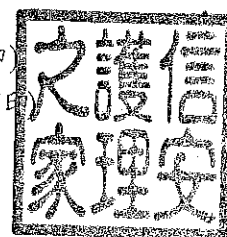 信安
護理
之家
印)